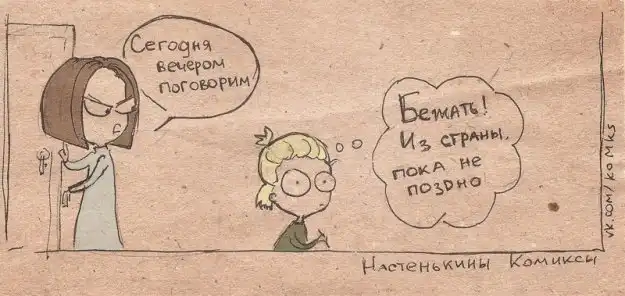 Сегодня
вечером
поговорим
Бежать!
Из страны,
пока не
поздно
Настенькины Комиксы
vk.com/komks